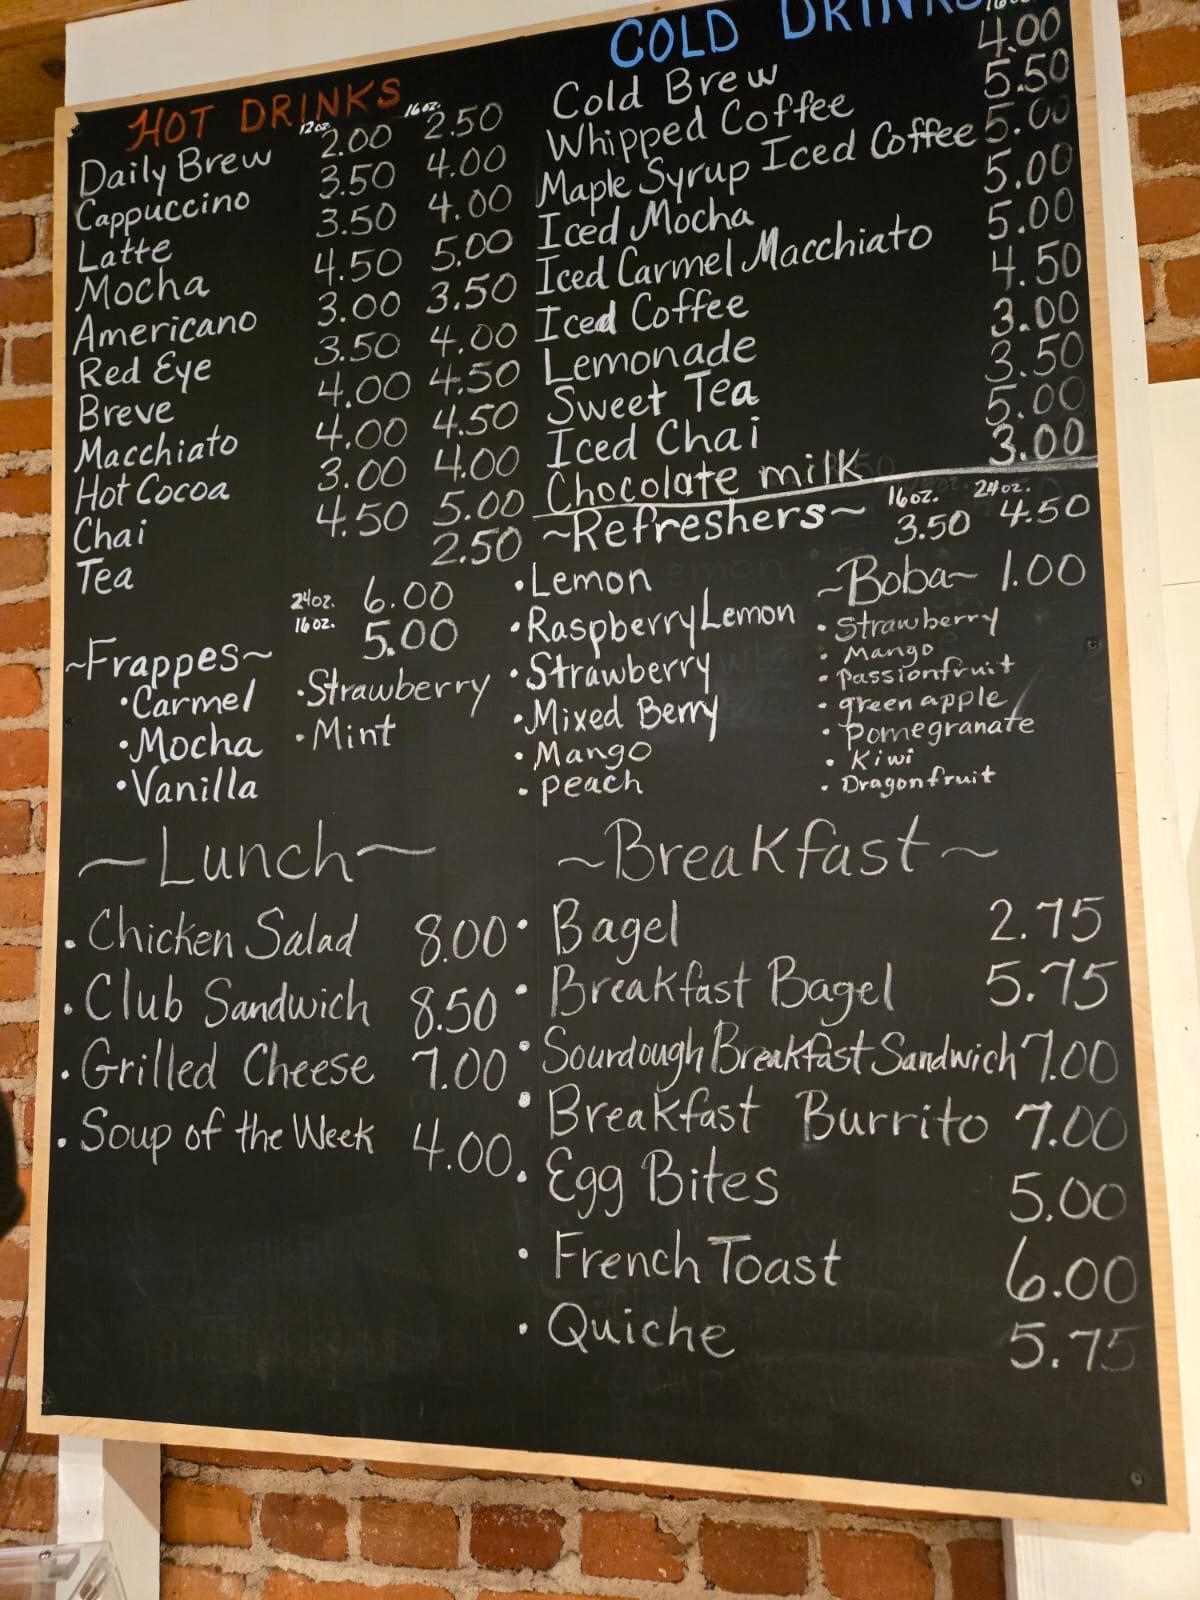 HOT DRINKS
12oz. 16oz.
Daily Brew 2.00 2.50
Cappuccino 3.50 4.00
Latte 3.50 4.00
Mocha 4.50 5.00
Americano 3.00 3.50
Red Eye 3.50 4.00
Breve 4.00 4.50
Macchiato 4.00 4.50
Hot Cocoa 3.00 4.00
Chai 4.50 5.00
Tea 2.50
24oz. 6.00
16oz. 5.00
~Frappes~
•Carmel •Strawberry
•Mocha •Mint
•Vanilla
COLD DRINKS
16oz.
Cold Brew 4.00
Whipped Coffee 5.50
Maple Syrup Iced Coffee 5.00
Iced Mocha 5.00
Iced Carmel Macchiato 5.00
Iced Coffee 4.50
Lemonade 3.00
Sweet Tea 3.50
Iced Chai 5.00
Chocolate milk 3.00
16oz. 24oz.
~Refreshers~ 3.50 4.50
•Lemon
•Raspberry Lemon
•Strawberry
•Mixed Berry
•Mango
•peach
~Boba~ 1.00
•Strawberry
•Mango
•passionfruit
•green apple
•pomegranate
•Kiwi
•Dragonfruit
~Lunch~
•Chicken Salad 8.00
•Club Sandwich 8.50
•Grilled Cheese 7.00
•Soup of the Week 4.00
~Breakfast~
•Bagel 2.75
•Breakfast Bagel 5.75
•Sourdough Breakfast Sandwich 7.00
•Breakfast Burrito 7.00
•Egg Bites 5.00
•French Toast 6.00
•Quiche 5.75